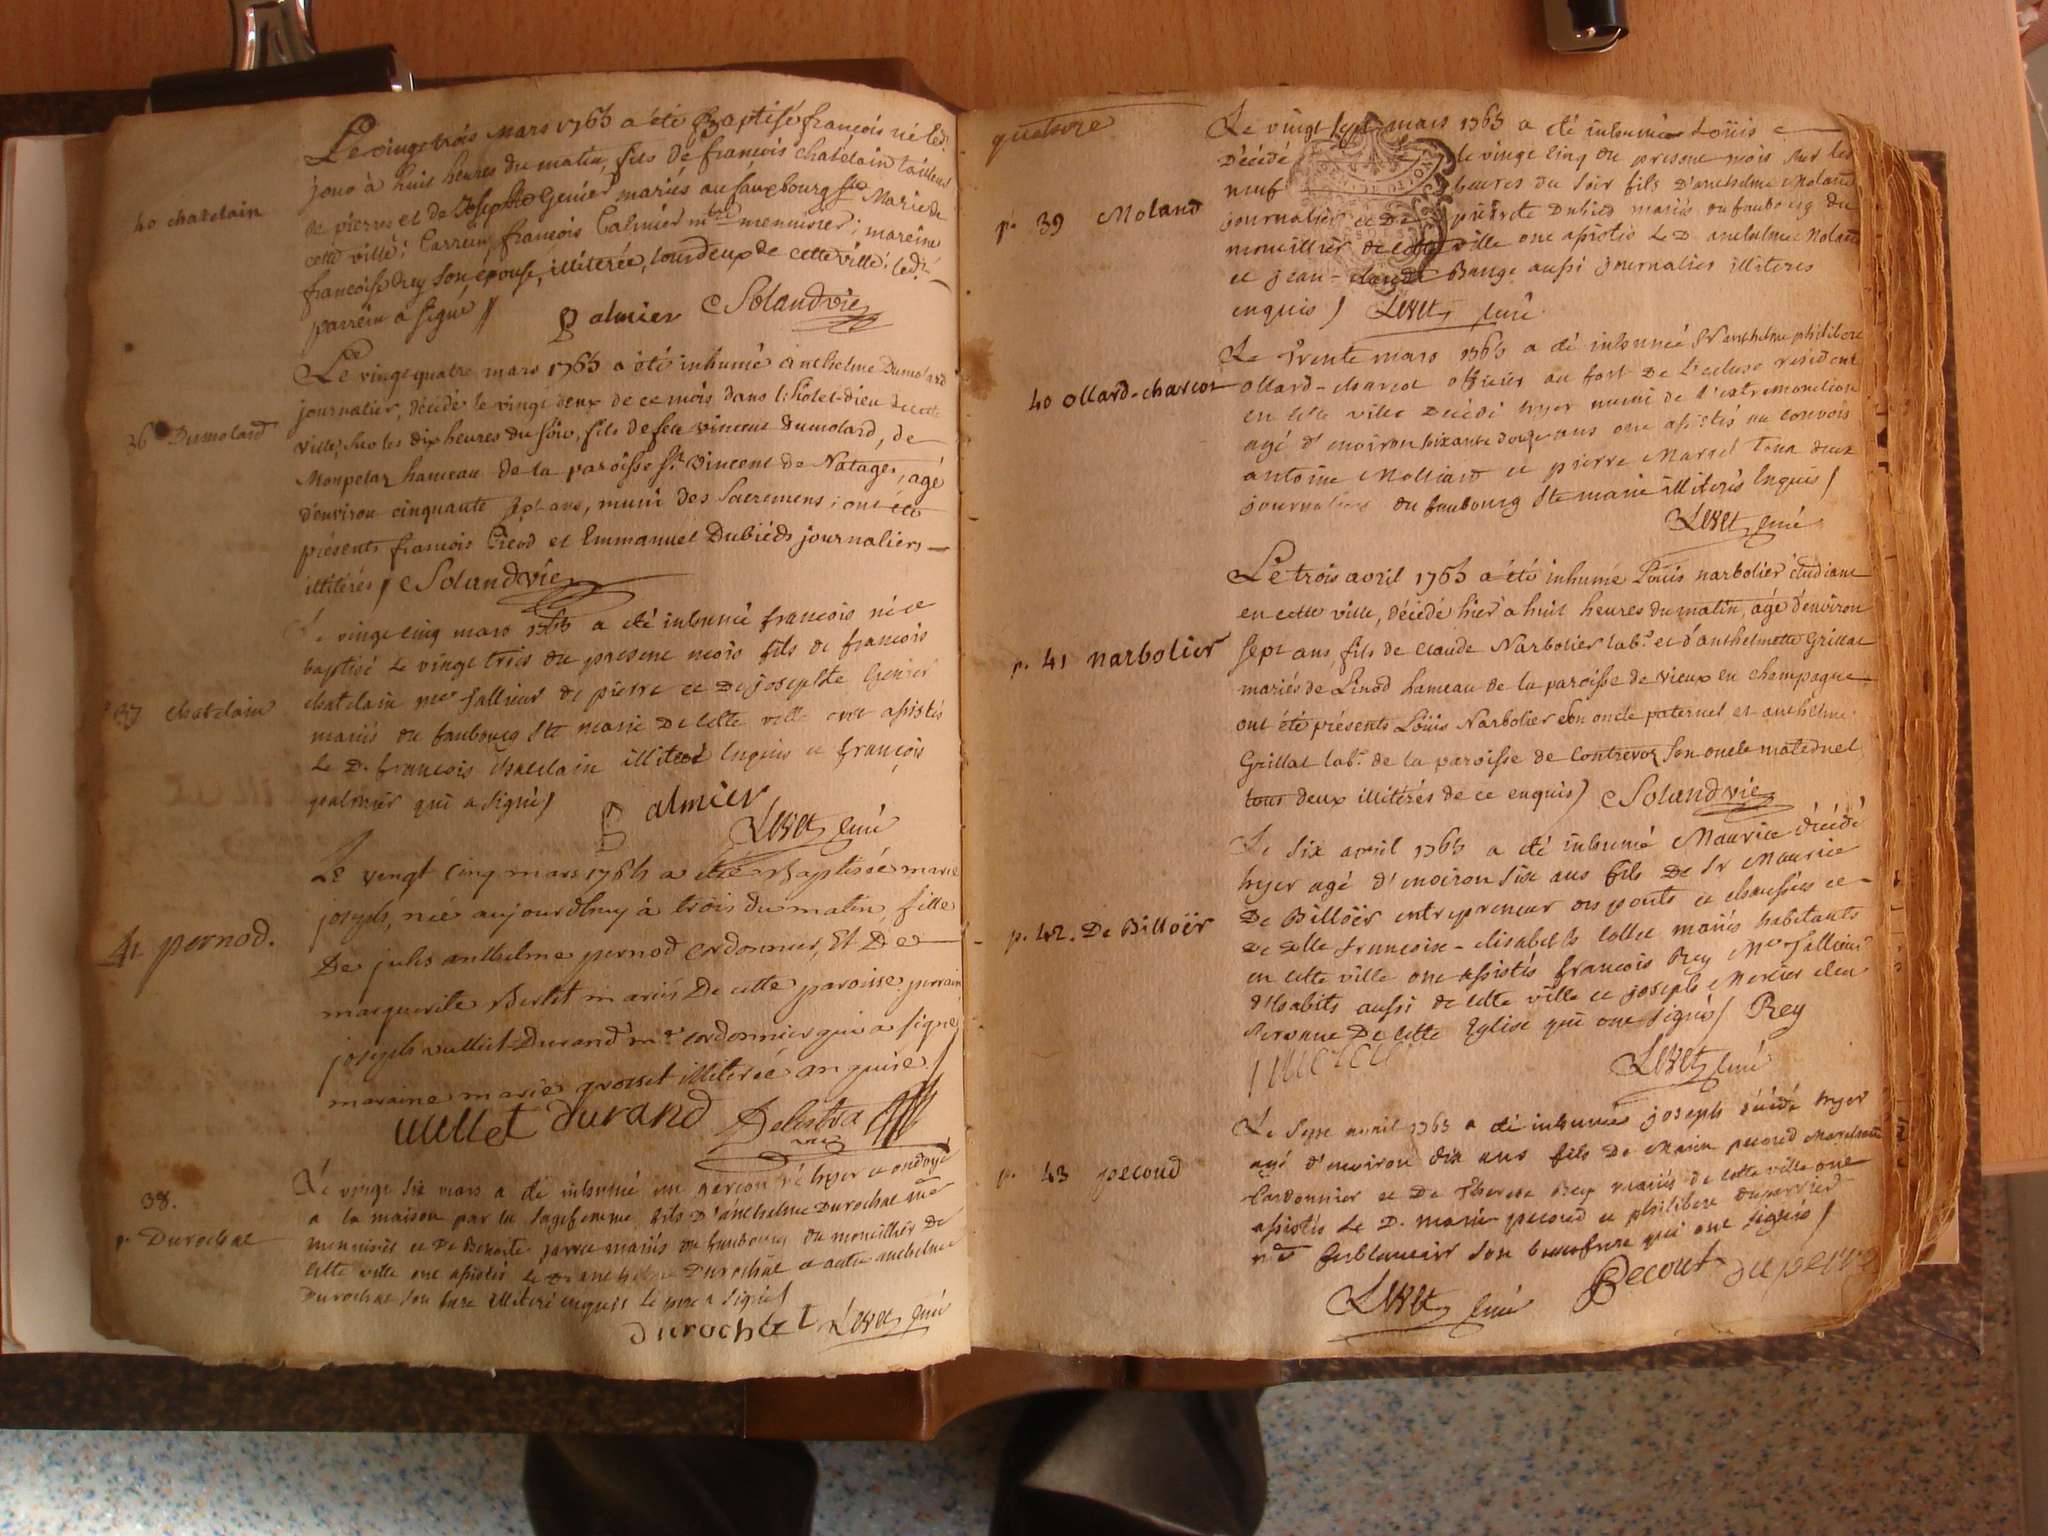 Le vingt trois mars 1765 a été Baptisé françois né led.
jour à huit heures du matin, fils de françois chatelain tailleur
de pierres et de Josephte Genier mariés au fauxbourg Ste Marie de
40 chatelain
cette ville; Parrein françois Palmier mtre menuisier; mareine
françoise Rey son épouse, illitérée, tous deux de cette ville; led.
parrein a signé //
Palmier Solandvie
Le vingt quatre mars 1765 a été inhumé anthelme Dumolard
journalier, décédé le vingt deux de ce mois dans l'hôtel-dieu de cette
36 Dumolard
ville, sur les dix heures du soir, fils de feu vincent Dumolard, de
Monpelaz hameau de la paroisse St. Vincent de Natages, agé
d'environ cinquante sept ans, muni des Sacremens; ont été
présents françois et Emmanuel Dubiéds journaliers
illitérés / Solandvie
Le vingt cinq mars 1765 a été inhumé françois né et
baptisé le vingt trois du present mois fils de françois
37 chatelain
chatelain me tallieur de pierre et de josephte Genier
mariés du faubourg Ste marie De cette ville ont assistés
le D. françois chatelain illiteré enquis et françois
palmier qui a signé /
Palmier
Levet curé
Le vingt cinq mars 1765 a été Baptisée marie
joseph, née aujourdhuy à trois du matin, fille
41 pernod.
De jules anthelme pernod Cordonnier, Et De
marguerite Bertet mariés De cette paroisse. perrain
joseph vullict Durand me cordonnier qui a signé
maraine marie grosset illiterée anquise /
Durand
38.
Le vingt six mars a été inhumé un garçon né hyer et ondoyé
a la maison par la sagefemme fils D'anthelme Durochat me
p. Durochat
mennisier et De Benoite mariés du faubourg du
cette ville ont assistés le D. anthelme Durochat et autre anthelme
Durochat son illiteré enquis le pere a signé /
durochat Levet curé
quatorze
Le vingt sept mars 1765 a été inhumé Loüis
Décédé le vingt cinq du present mois sur les
neuf heures du soir fils D'anthelme Moland
p. 39 Moland
journalier et De pierrete Dubied mariés du faubourg du
de cette ville ont assistés le D. anthelme Moland
et jean-claude Bange aussi journalier illiteres
enquis / Levet curé
Le Trente mars 1765 a été inhumé Sr anthelme philibert
40 ollard-charcot
ollard-charcot officier au fort De l'ecluse resident
en cette ville Décédé hyer muni de l'extremonction
agé d'environ soixante douze ans ont assistés au convois
antoine Molliard et pierre Martel tous deux
journaliers du faubourg Ste marie illiterés enquis /
Levet curé
Le trois avril 1765 a été inhumé Loüis narbolier étudiant
en cette ville, décédé hier à huit heures du matin, âgé d'environ
p. 41 narbolier
sept ans, fils de claude Narbolier labr. et d'anthelmette Grillat
mariés de Linod hameau de la paroisse de vieux en champagne
ont été présents Loüis Narbolier son oncle paternel, et anthelme
Grillat labr. de la paroisse de Contrevoz son oncle maternel
tous deux illitérés de ce enquis / Solandvie
Le six avril 1765 a été inhumé Maurice décédé
hyer agé d'environ six ans fils De Sr Maurice
p. 42. De Billöer
De Billöer entrepreneur des ponts et chaussées et
De Delle françoise-elisabeth Collet mariés habitants
en cette ville ont assistés françois Rey Me tallieur
d'habits aussi de cette ville et joseph Mercier clerc
servant De cette Eglise qui ont signés / Rey
Mercier
Levet curé
Le sept avril 1765 a été inhumé joseph décédé hyer
agé d'environ dix ans fils De Marin pecoud Marchand
p. 43 pecoud
Cordonnier et De Therese Bey mariés de cette ville ont
assistés le D. marin pecoud et philibert duperrier
me ferblancier son beaufrere qui ont signés /
Levet curé
Pecout